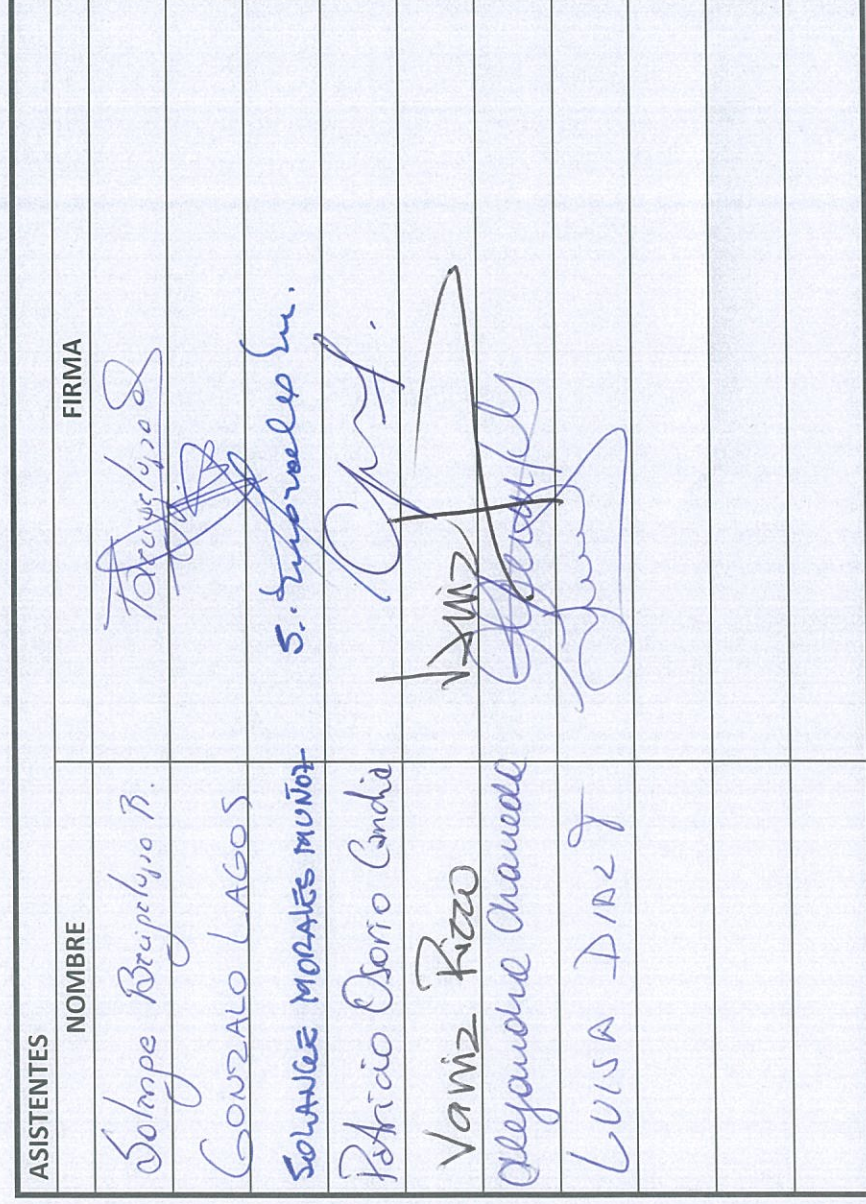 ASISTENTES
NOMBRE FIRMA
Solange R
GONZALO LAGOS
SOLANGE MORALES MUÑOZ S. Morales M.
Patricio Osorio Candia
Vaniz Rizzo Vaniz
Alejandra Chaneda
LUISA DIAZ